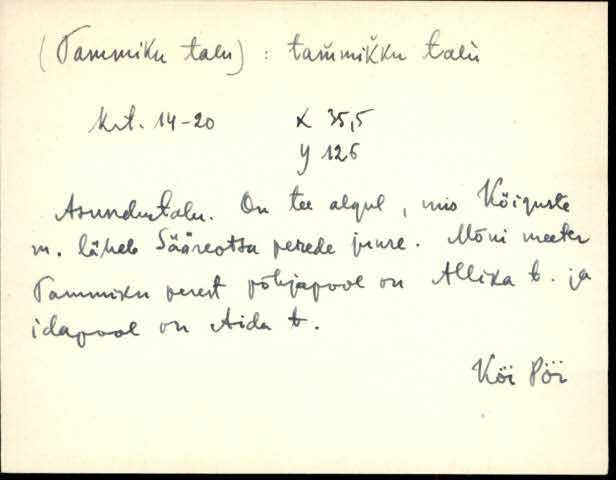 (Tammiku talu) : tam̆mik̆ku talù
krt. 14-20 X 35,5
Y 126
Asundustalu. On tee algul, mis Kõiguste
m. läheb Sääreotsa perede juure. Mõni meeter
Tammiku perest põhjapool on Allika t. ja
idapool on Aida t.
Köi Pöi